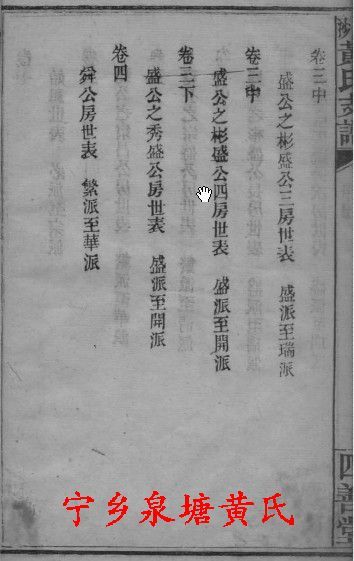 黃氏支譜
四善堂
卷三中
盛公之彬盛公三房世表 盛派至瑞派
卷三中
盛公之彬盛公四房世表 盛派至開派
卷三下
盛公之秀盛公房世表 盛派至開派
卷四
舜公房世表 繁派至華派
宁乡泉塘黄氏